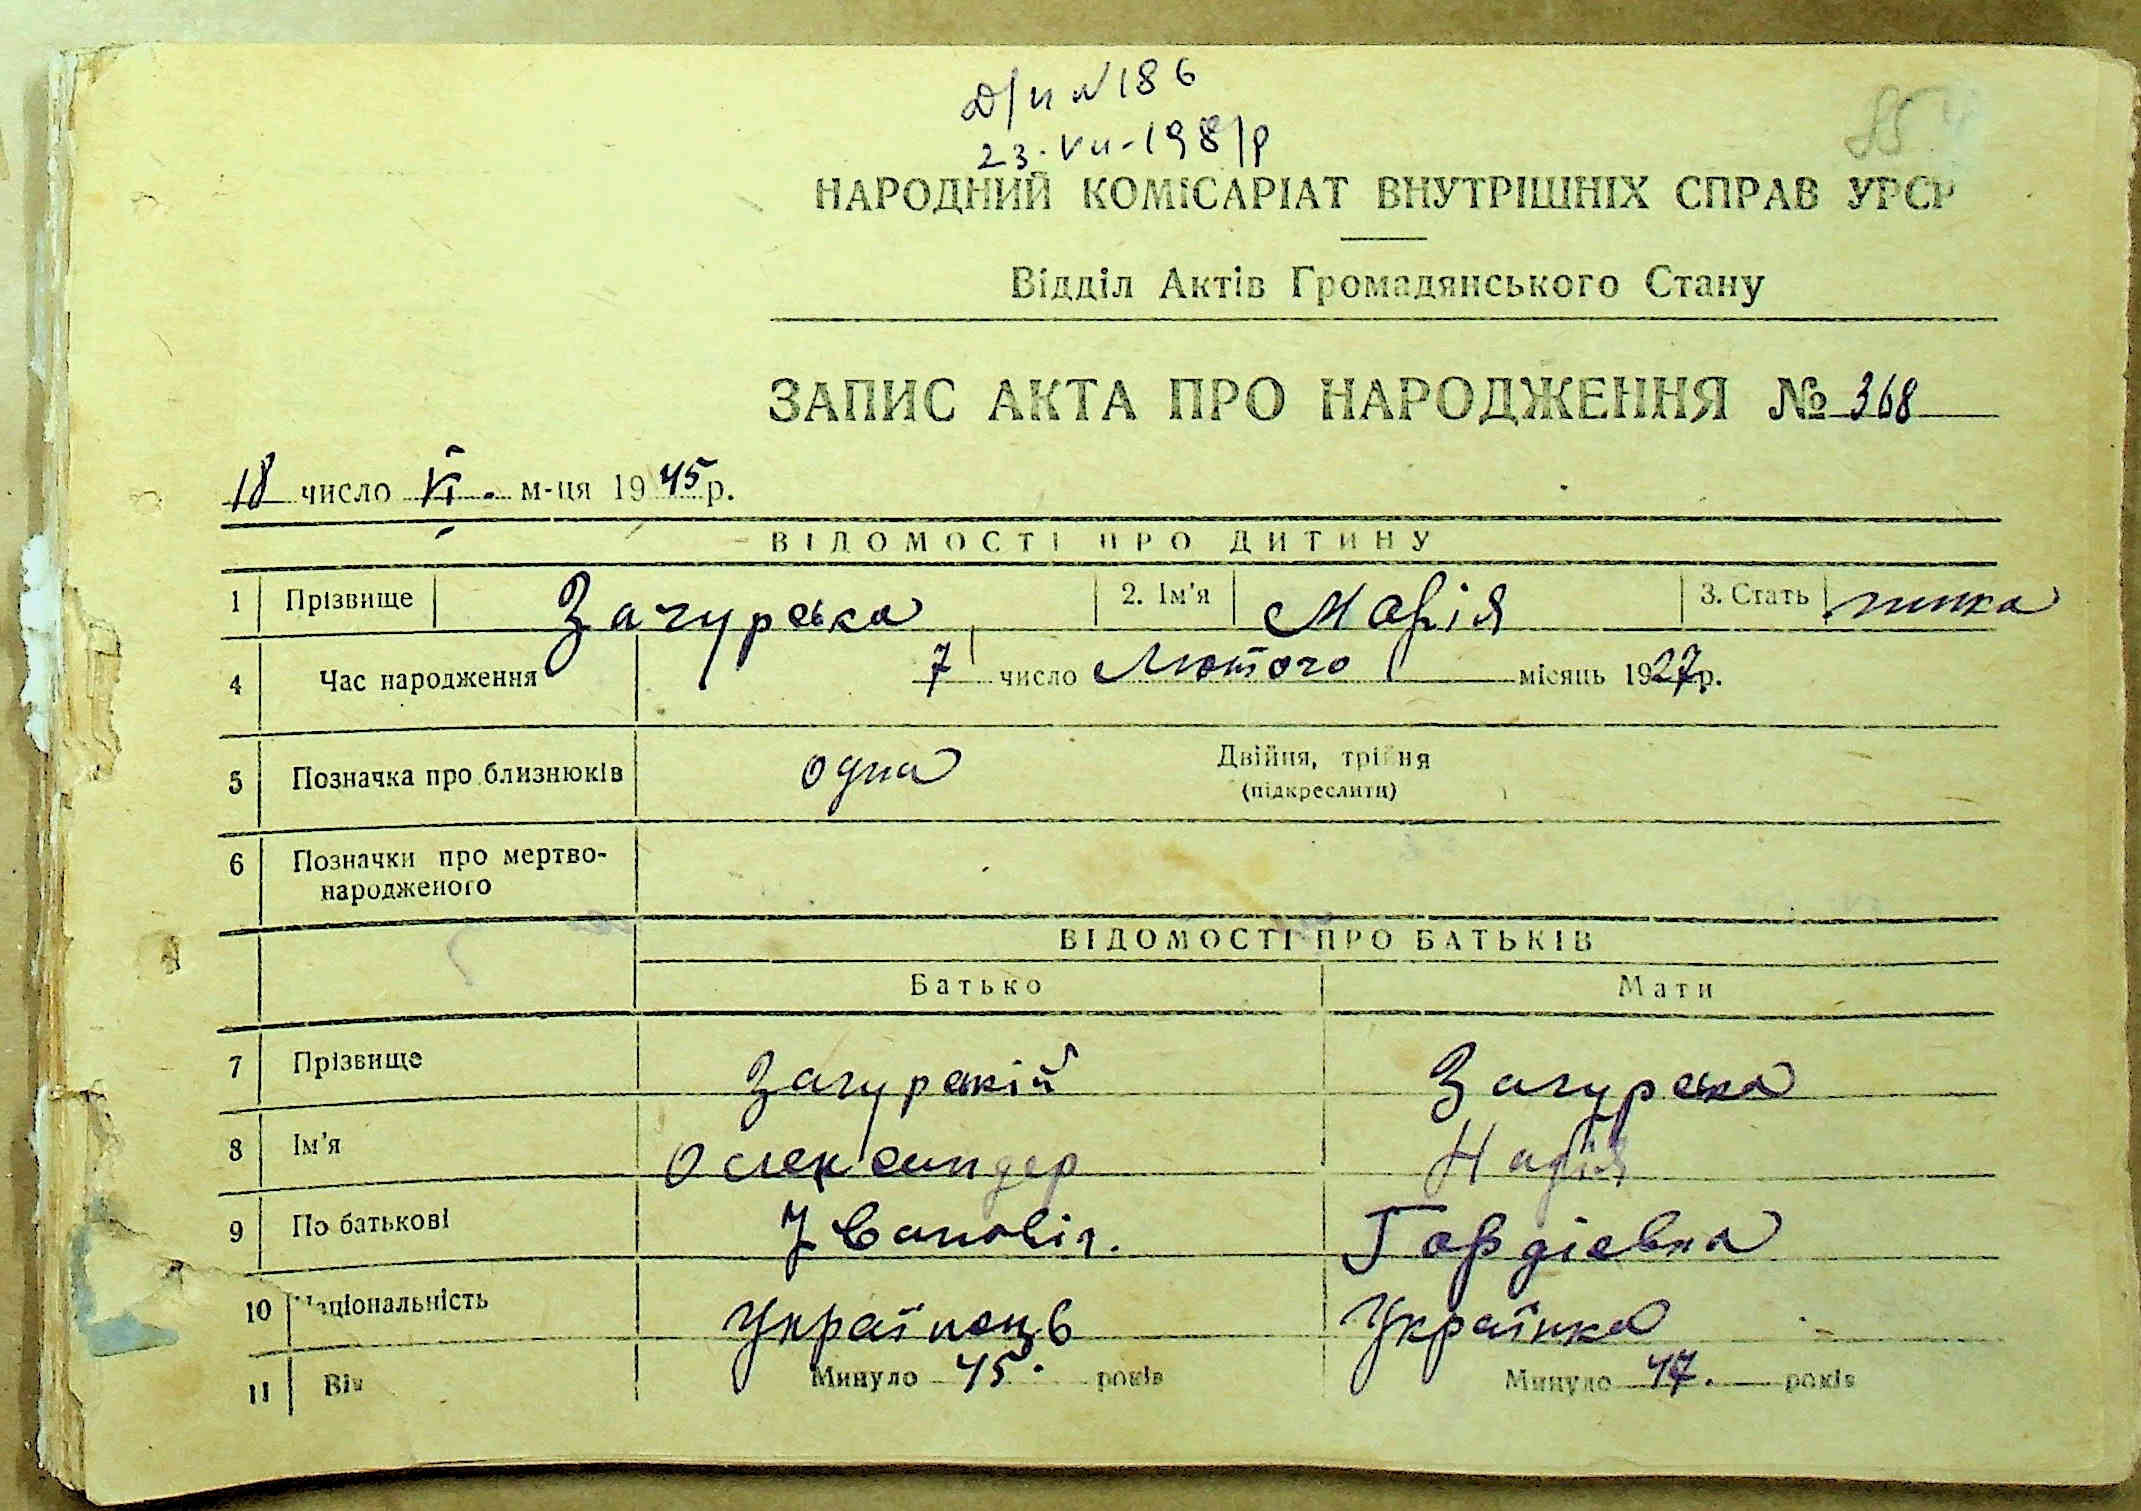 Д/и №186
23.VII-1981р
85
НАРОДНИЙ КОМІСАРІАТ ВНУТРІШНІХ СПРАВ УРСР
Відділ Актів Громадянського Стану
ЗАПИС АКТА ПРО НАРОДЖЕННЯ № 368
18 число VI. м-ця 1945 р.
ВІДОМОСТІ ПРО ДИТИНУ
1 Прізвище Загурська 2. Ім'я Марія 3. Стать
4 Час народження 7 число Лютого місяць 1927р.
5 Позначка про близнюків одна Двійня, трійня
(підкреслити)
6 Позначки про мертво-
народженого
ВІДОМОСТІ ПРО БАТЬКІВ
Батько Мати
7 Прізвище Загурский Загурська
8 Ім'я Олександер Марія
9 По батькові Іванович. Гордієвна
10 Національність Українець Українка
11 Вік Минуло 45. років Минуло 47. років